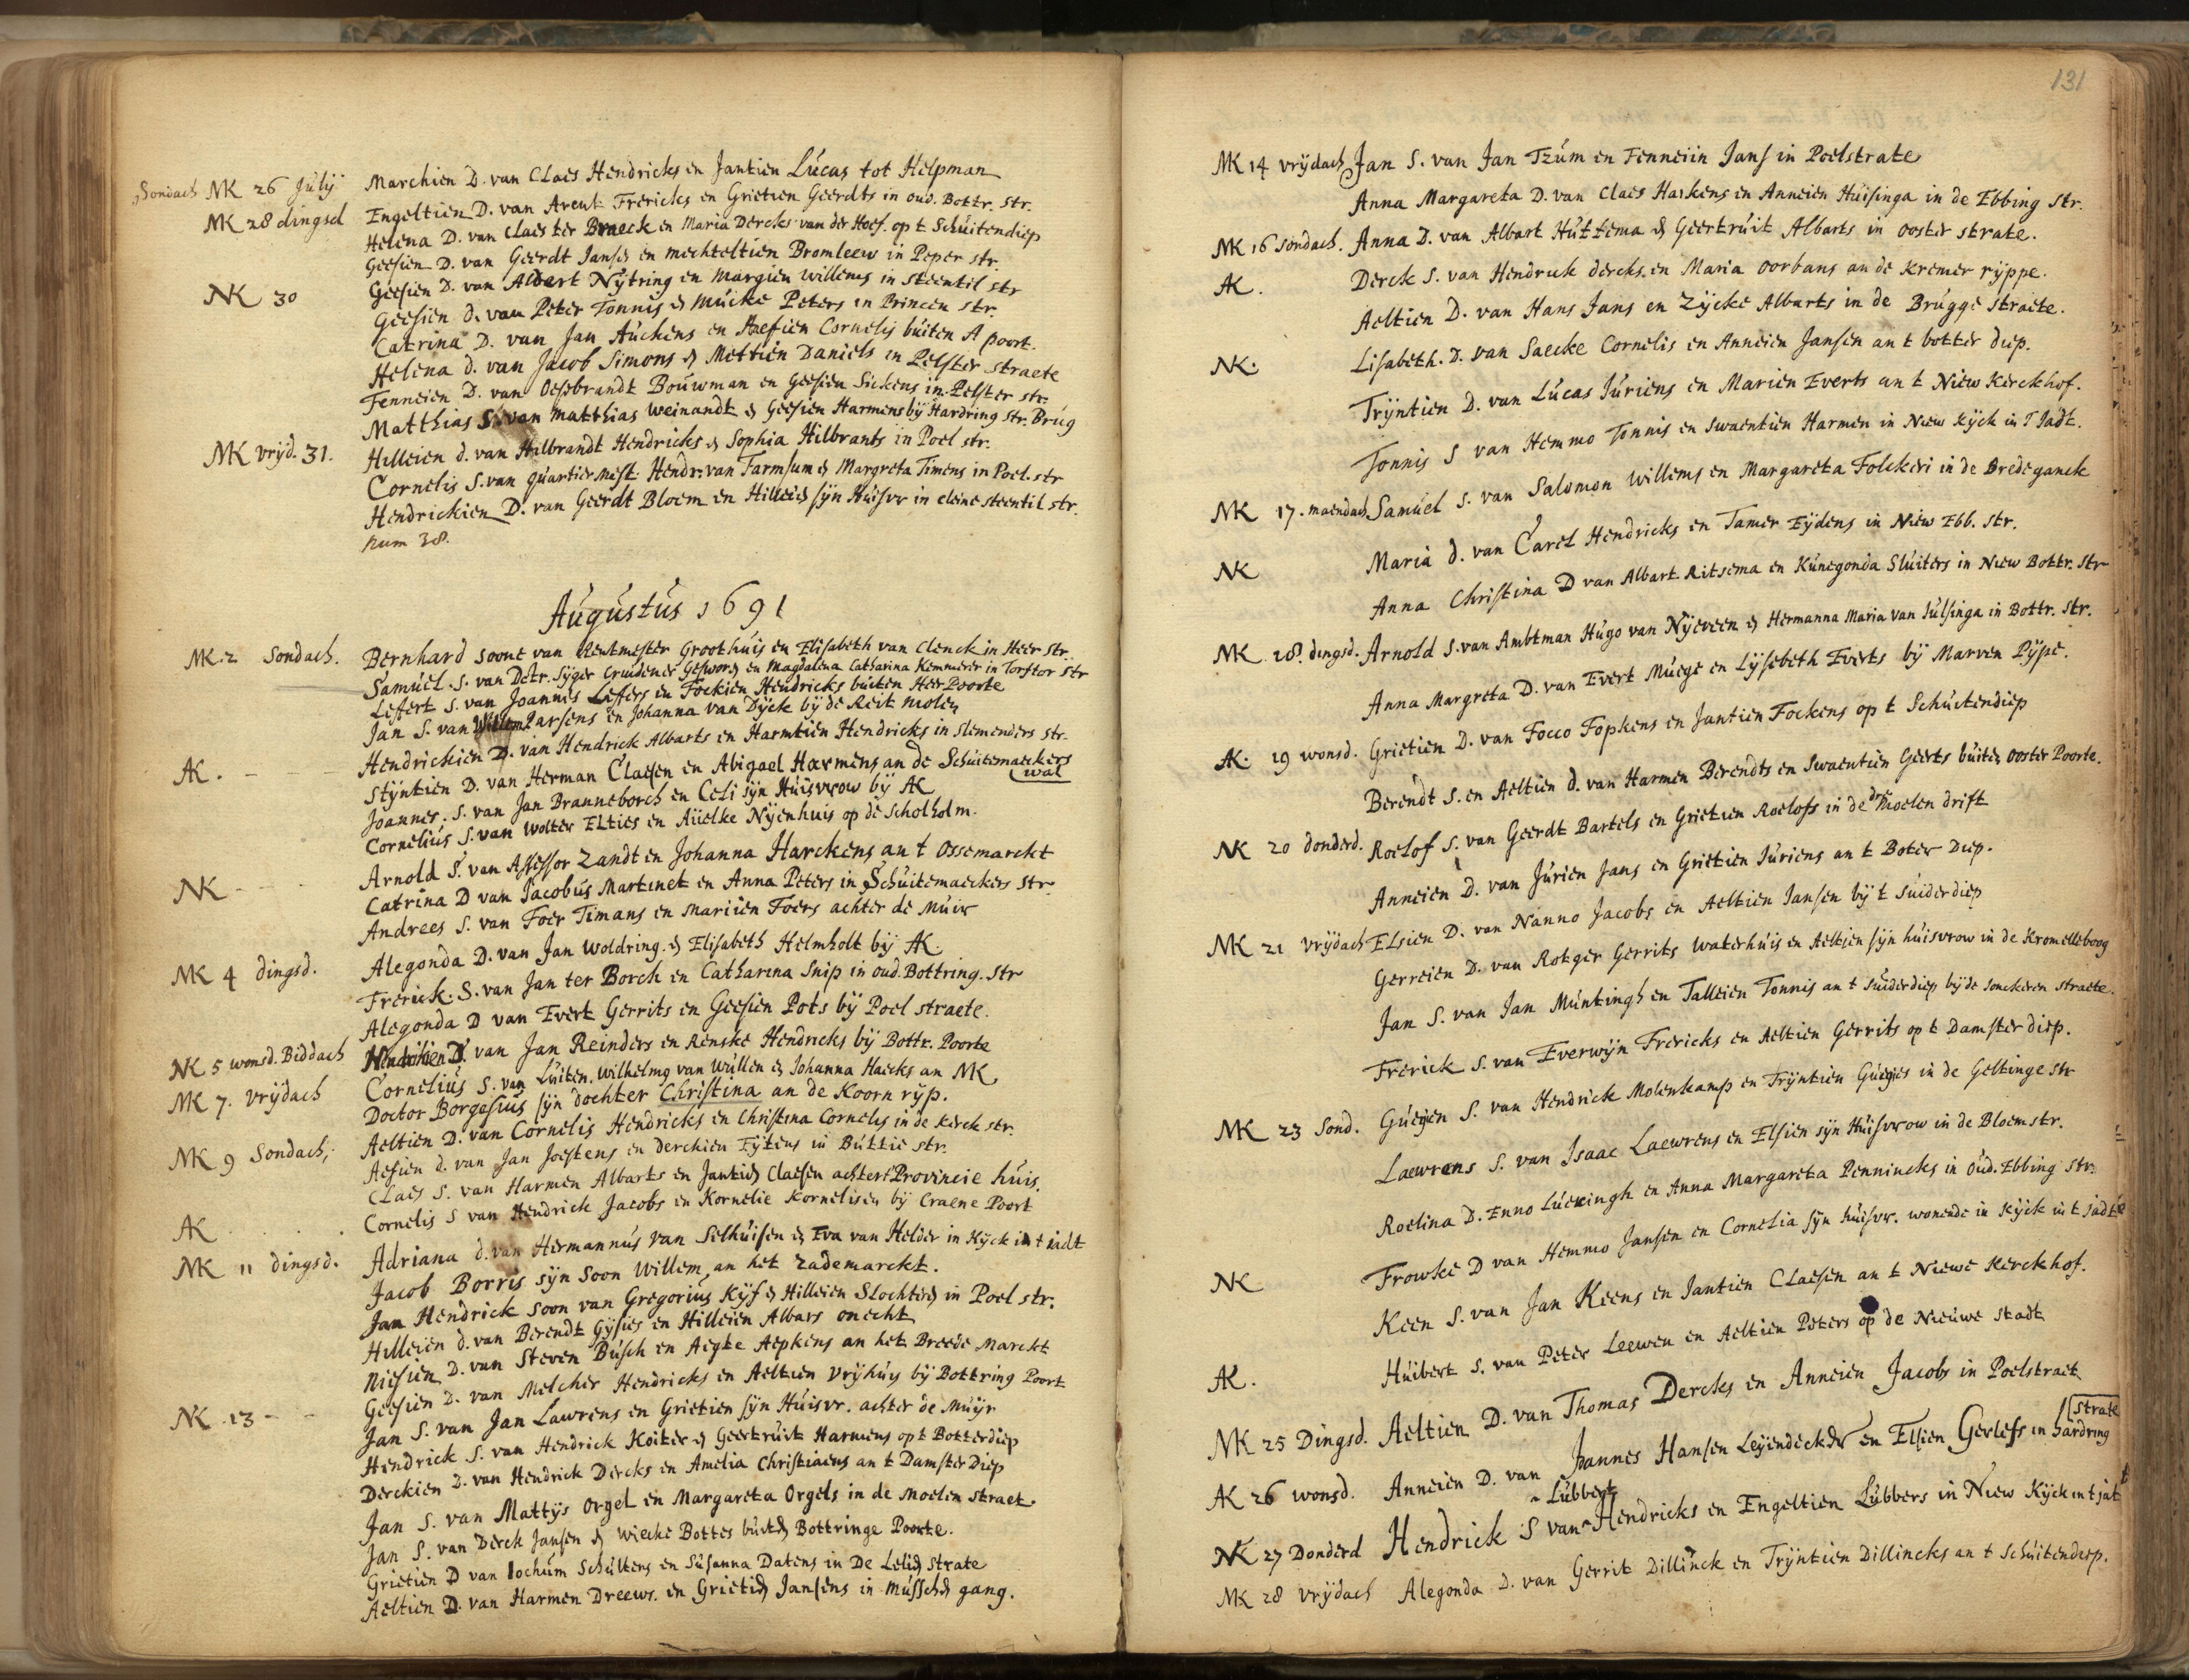 Sondach MK 26 Julÿ Marchien D. van Claes Hendricks en Jantien Lucas tot Helpman
MK 28 dingsd Engeltien D. van Arent Frericks en Grietien Geerdts in oud. Bottr. Str.
Helena D. van Claes ter Braeck en Maria Dercks van der Hoef. op t Schuitendiep
Geesien D. van Geerdt Jansen en mechteltien Bromleew in Peper str.
NK 30 Geesien D. van Albert Nÿtring en Margien willems in Steentil str
Geesien d. van Peter Tonnis en Mucke Peters in Princen str.
Catrina D. van Jan Auckens en Cornelis buiten A poort.
Helena d. van Jacob Simons en Mettien Daniels in Pelster straete
Fenneien D. van Oessebrandt Bouwman en Geesien Sickens in Pelster str.
Matthias S. van Matthias Weinandt en Geesien Harmens bÿ Hardring str. Brug
MK vrijd. 31. Hilleien d. van Hilbrandt Hendricks en Sophia Hilbrants in Poel str.
Cornelis S. van quartiermest. Hendr. van Farmsum en Margreta Timens in Poel. str
Hendrickien D. van Geerdt Bloem en Hilleien sÿn Huisvr in cleine steentil str.
num 38.
Augustus 1691
MK. 2 Sondach. Bernhard soone van Rentmester Groothuis en Elisabeth van Clenck in Heer str.
Samuel. S. van Detr. Sÿger Cruidener Geswor. en Magdalena Catharina Kemmerer in Torstor Str
Leffert S. van Joannis Leffers en Fockien Hendricks buiten Heer Poorte
Jan S. van Willem Carsens en Johanna van Dÿck bÿ de Reit molen
Hendrickien D. van Hendrick Albarts en Harmtien Hendricks in Slemenders str.
AK. Stÿntien D. van Herman Claesen en Abigael Harmens an de Schuitemaeckers
wal
Joannes. S. van Jan Branneborch en Celi sÿn Huisvrow bÿ AK
Cornelius S. van Wolter Elties en Aüelke Nÿenhuis op de Scholholm.
Arnold S. van Assessor Zandt en Johanna Harckens an t Ossemarckt
NK Catrina D van Jacobus Martinet en Anna Peters in Schuitemaeckers str.
Andrees S. van Foer Timans en Mariien Foers achter de Muir
Alegonda D. van Jan Woldring. en Elisabeth Helmholt bÿ AK.
MK 4 dingsd. Frerick. S. van Jan ter Borch en Catharina Snip in oud. Bottring. Str
Alegonda D van Evert Gerrits en Geesien Pots bÿ Poel straete.
NK 5 wonsd. Biddach D. van Jan Reinders en Renske Hendricks bÿ Bottr. Poorte
MK 7. vrÿdach Cornelius S. van Luiten. Wilhelmg van Wullen en Johanna Haecks an NK
Doctor Borgesius sÿn dochter Christina an de Koorn rÿp.
Aeltien D. van Cornelis Hendricks en Christina Cornelis in de Kerck str.
MK 9 Sondach; Aesien d. van Jan Joestens en Derckien Eÿtens in Buttie str.
Claes S. van Harmen Albarts en Jantien Claesen achter t Provincie huis.
AK Cornelis S van Hendrick Jacobs en Kornelie Kornelisen bÿ Craene Poort
MK 11 dingsd. Adriana d. van Hermannus van Selhuisen en Eva van Helder in Kÿck in t jadt
Jacob Borris sÿn Soon Willem an het Zademarckt.
Jan Hendrick soon van Gregorius Kÿf en Hilleien Slochter in Poel str.
Hilleien d. van Berendt Gÿsies en Hilleien Albars onecht
Niesien D. van Steven Busch en Aegte Aepkens an het Breede Marckt
Geesien D. van Melcher Hendricks en Aeltien Vrÿhuÿs bÿ Bottring Poort
NK 13 Jan S. van Jan Lawrens en Grietien sÿn Huisvr. achter de Muÿr
Hendrick S. van Hendrick Koiter en Geertruit Harmens op t Botterdiep
Derckien D. van Hendrick Dercks en Amelia Christiaens an t Damster Diep
Jan S. van Mattÿs Orgel en Margareta Orgels in de Moelen straet.
Jan S. van Derck Jansen en Wiecke Bottes buiten Bottringe Poorte.
Grietien D van Jochum Schultens en Susanna Datens in De Lelien strate
Aeltien D. van Harmen Dreews. en Grietien Jansens in Musschen gang.
131
MK 14 vrÿdach Jan S. van Jan Tzum en Fenneiin Jans in Poelstrate
Anna Margareta D. van Claes Harkens en Anneien Huisinga in de Ebbing str.
MK 16 Sondach. Anna D. van Albart Huttema en Geertruit Albarts in ooster strate.
AK. Derck S. van Hendrick dercks. en Maria Oorbans an de Kremer rÿppe.
Aeltien D. van Hans Jans en Zÿcke Albarts in de Brugge straete.
NK. Lisabeth. D. van Saecke Cornelis en Anneien Jansen an t botter diep.
Trÿntien D. van Lucas Juriens en Marien Everts an t Niew Kerckhof.
Tonnis S van Hemmo Tonnis en Swaentien Harmen in Niew Kÿck in T Jadt.
MK 17. maendach Samuel S. van Salomon Willems en Margareta Folckeri in de Bredeganck
NK Maria d. van Carel Hendricks en Tamer Eÿdens in Niew Ebb. str.
Anna Christina D van Albart Ritsema en Kunegonda Sluiters in Niew Bottr. Str
MK 18. dingsd. Arnold S. van Ambtman Hugo van Nÿeveen en Hermanna Maria van Julsinga in Bottr. Str.
Anna Margreta D. van Evert Muege en Lÿsebeth Everts bÿ Marven Pÿpe.
AK. 19 wonsd. Grietien D. van Focco Fopkens en Jantien Fockens op t Schuitendiep
Berendt S. en Aeltien d. van Harmen Berendts en Swaentien Geerts buiten Ooster Poorte.
NK 20 donderd. Roelof S. van Geerdt Bartels en Grietien Roelofs in de dre Moelen drift
Anneien D. van Jurien Jans en Grietien Juriens an t Boter Diep.
MK 21 vrÿdach Elsien D. van Nanno Jacobs en Aeltien Jansen bÿ t Suiderdiep
Gerreien D. van Rotger Gerrits Waterhuis en Aeltien sÿn huisvrow in de Kromelleboog
Jan S. van Jan Muntingh en Talleien Tonnis an t Suiderdiep bÿ de Jonckeren straete.
Frerick S. van Everwÿn Frericks en Aeltien Gerrits op t Damster diep.
MK 23 Sond. Guegien S. van Hendrick Molenkamp en Trÿntien Guegies in de Geltinge str
Laewrens S. van Isaac Laewrens en Elsien sÿn Huisvrow in de Bloemstr.
Roelina D. Enno Lucningh en Anna Margareta Pennincks in Oud. Ebbing str.
NK Frowke D van Hemmo Jansen en Cornelia sÿn huisvr. wonende in Kÿck in t jadt
Keen S. van Jan Keens en Jantien Claesen an t Niewe Kerckhof.
AK. Huibert S. van Peter Leewen en Aeltien Peters op de Nieuwe Stadt
MK 25 Dingsd. Aeltien D. van Thomas Dercks en Anneien Jacobs in Poelstraet
AK 26 wonsd. Anneien D. van Joannes Hansen Leÿendecker en Elsien Gerlefs in hardring
strate
Lubbert
NK 27 Donderd Hendrick S van Hendricks en Engeltien Lubbers in Niew Kÿck in t jat
MK 28 vrÿdach Alegonda D. van Gerrit Dillinck en Trÿntien Dillincks an t Schuitendiep.